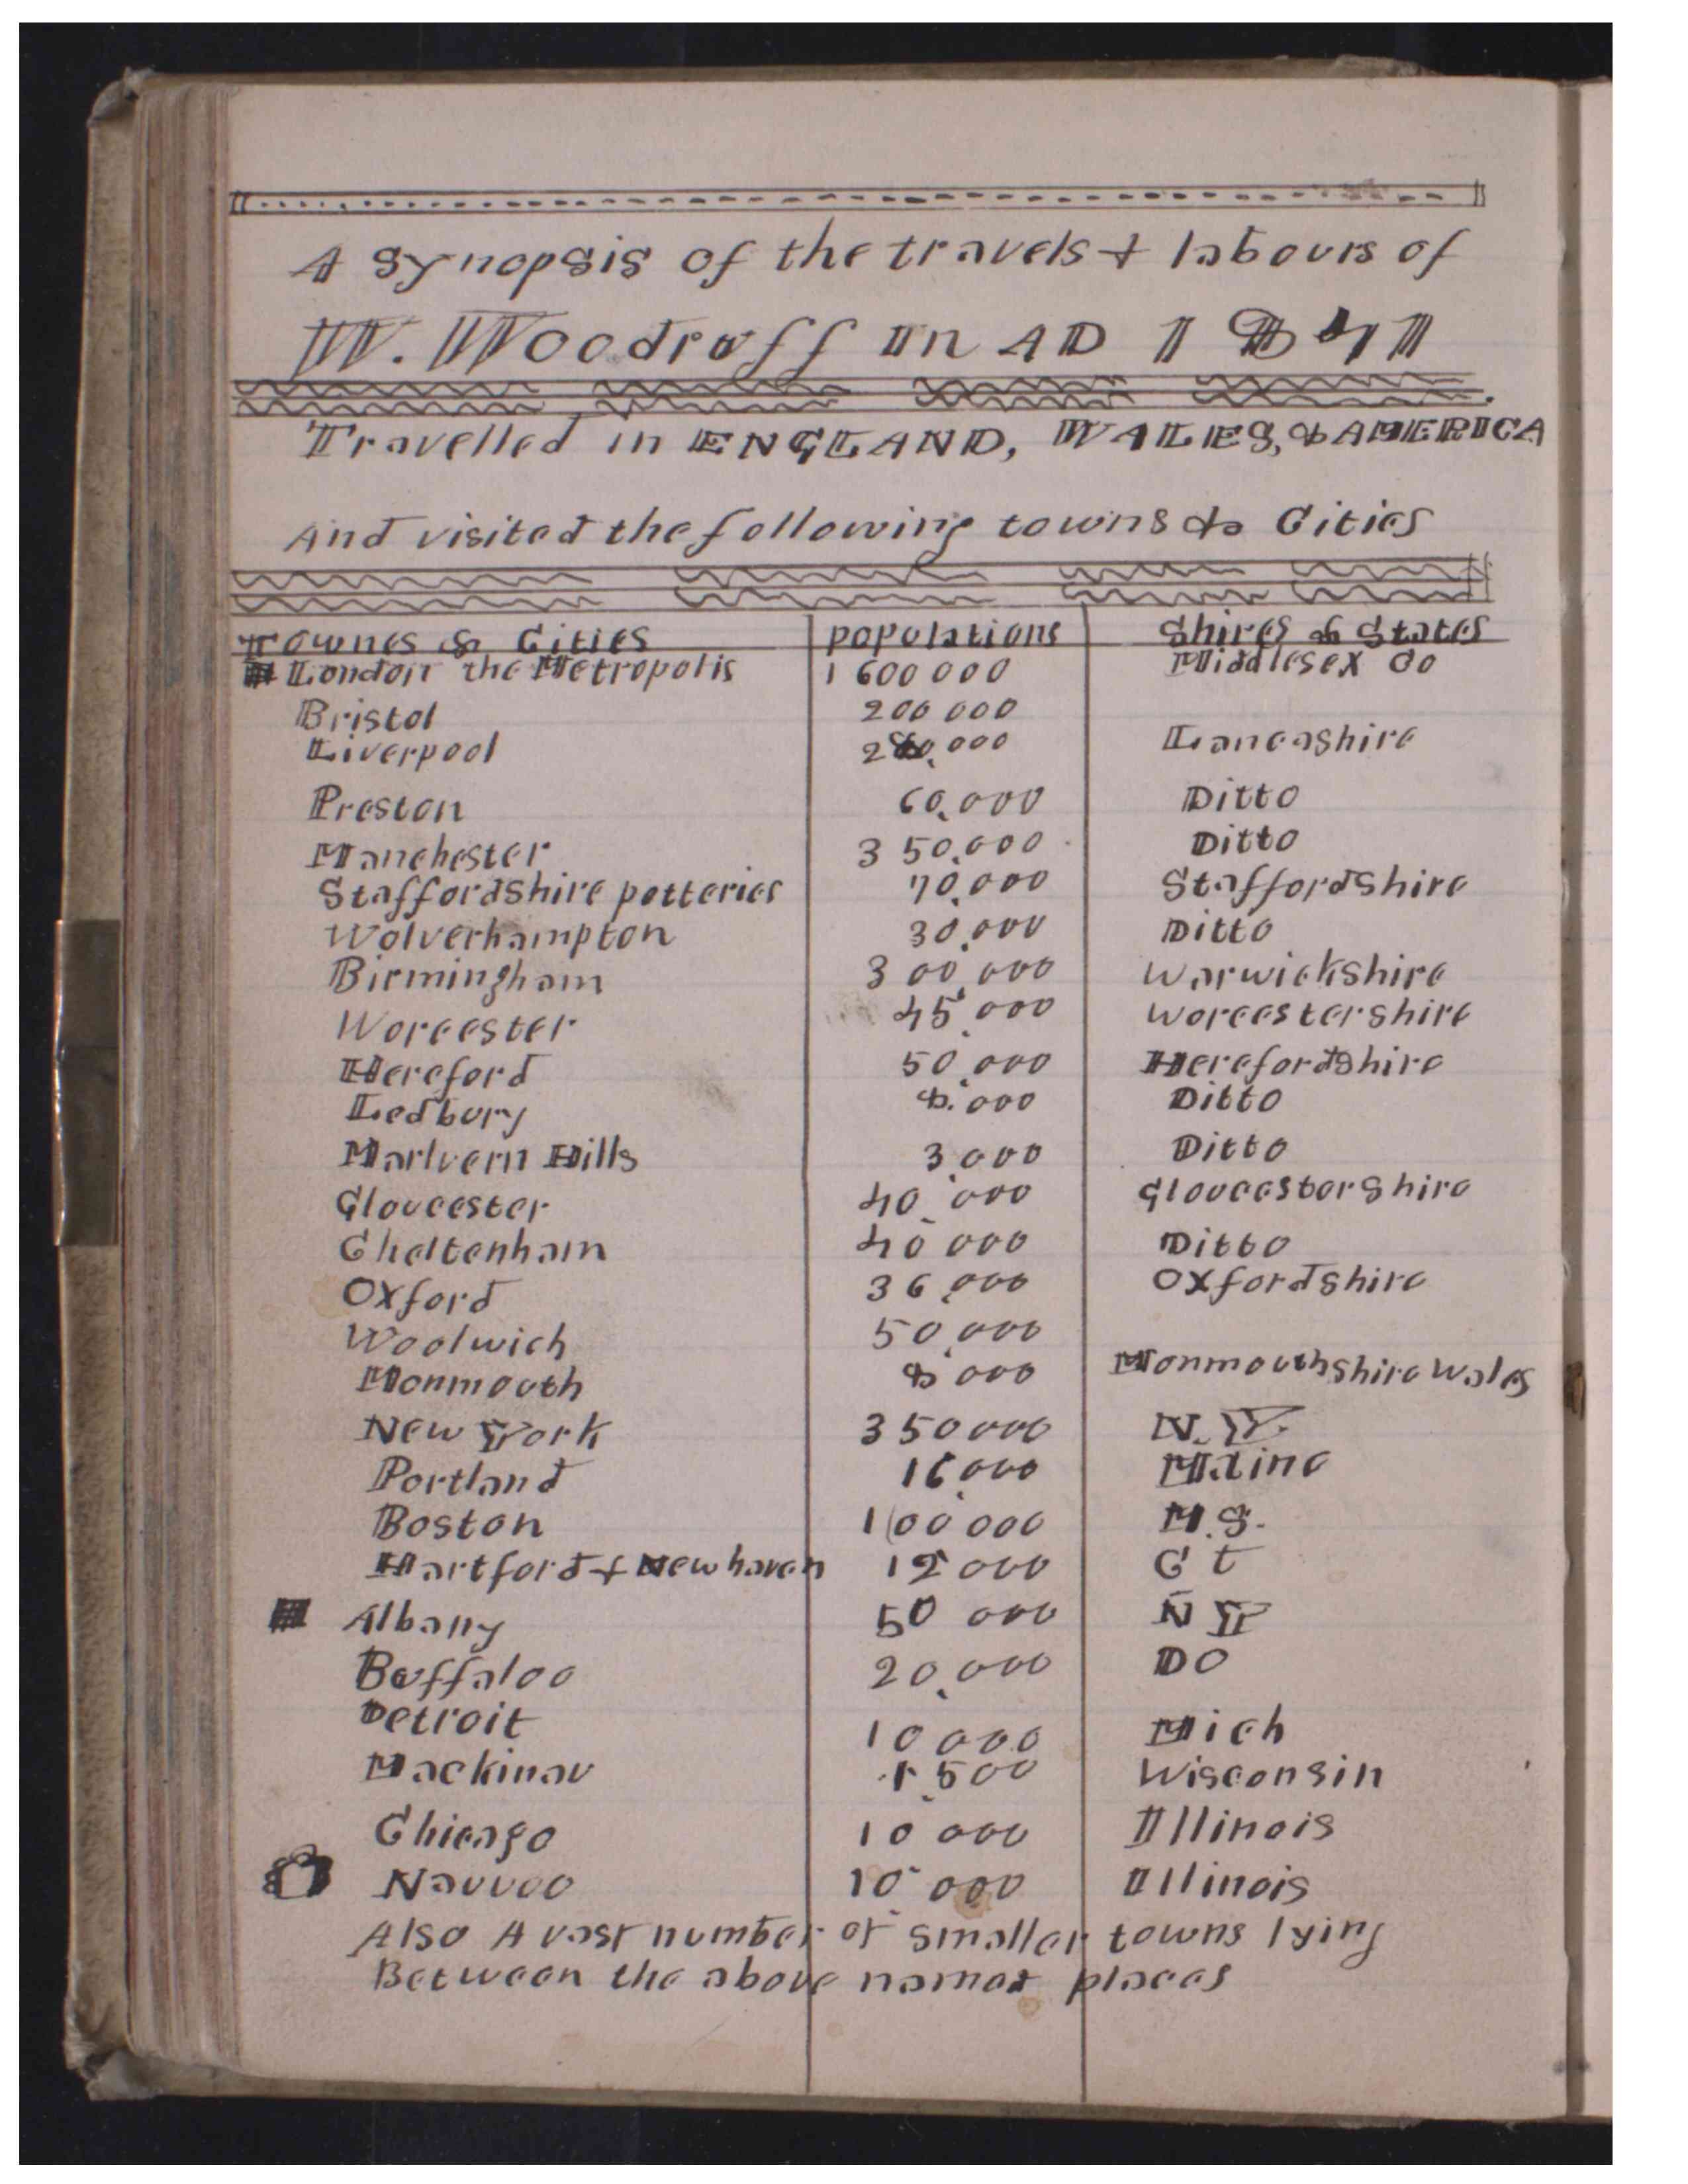 A Synopsis of the travels & labours of
W. Woodruff in AD 1841
Travelled in ENGLAND, WALES, & AMERICA
And visited the following towns & Cities
Townes & Cities populations Shires & States
London the Metropolis 1 600 000 Middlesex Co
Bristol 200 000
Liverpool 000 Lancashire
Preston 60,000 Ditto
Manchester 350,000 Ditto
Staffordshire potteries 70,000 Staffordshire
Wolverhampton 30,000 Ditto
Birmingham 300,000 Warwickshire
Worcester 45,000 Worcestershire
Hereford 50,000 Herefordshire
Ledbury 8,000 Ditto
Marlvern Hills 3,000 Ditto
Gloucester 40,000 Gloucestershire
Cheltenham 40 000 Ditto
Oxford 36,000 Oxfordshire
Woolwich 50,000
Monmouth 8 000 Monmouthshire Wales
New York 350000 N.Y.
Portland 16,000 Maine
Boston 100 000 M.S.
Hartford & New haven 000 Ct
Albany 50 000 NY
Buffaloo 20,000 DO
Detroit 10000 Mich
Mackinau 1,500 Wisconsin
Chicago 10 000 Illinois
Nauvoo 10 000 Illinois
Also A vast number of smaller towns lying
Between the above named places